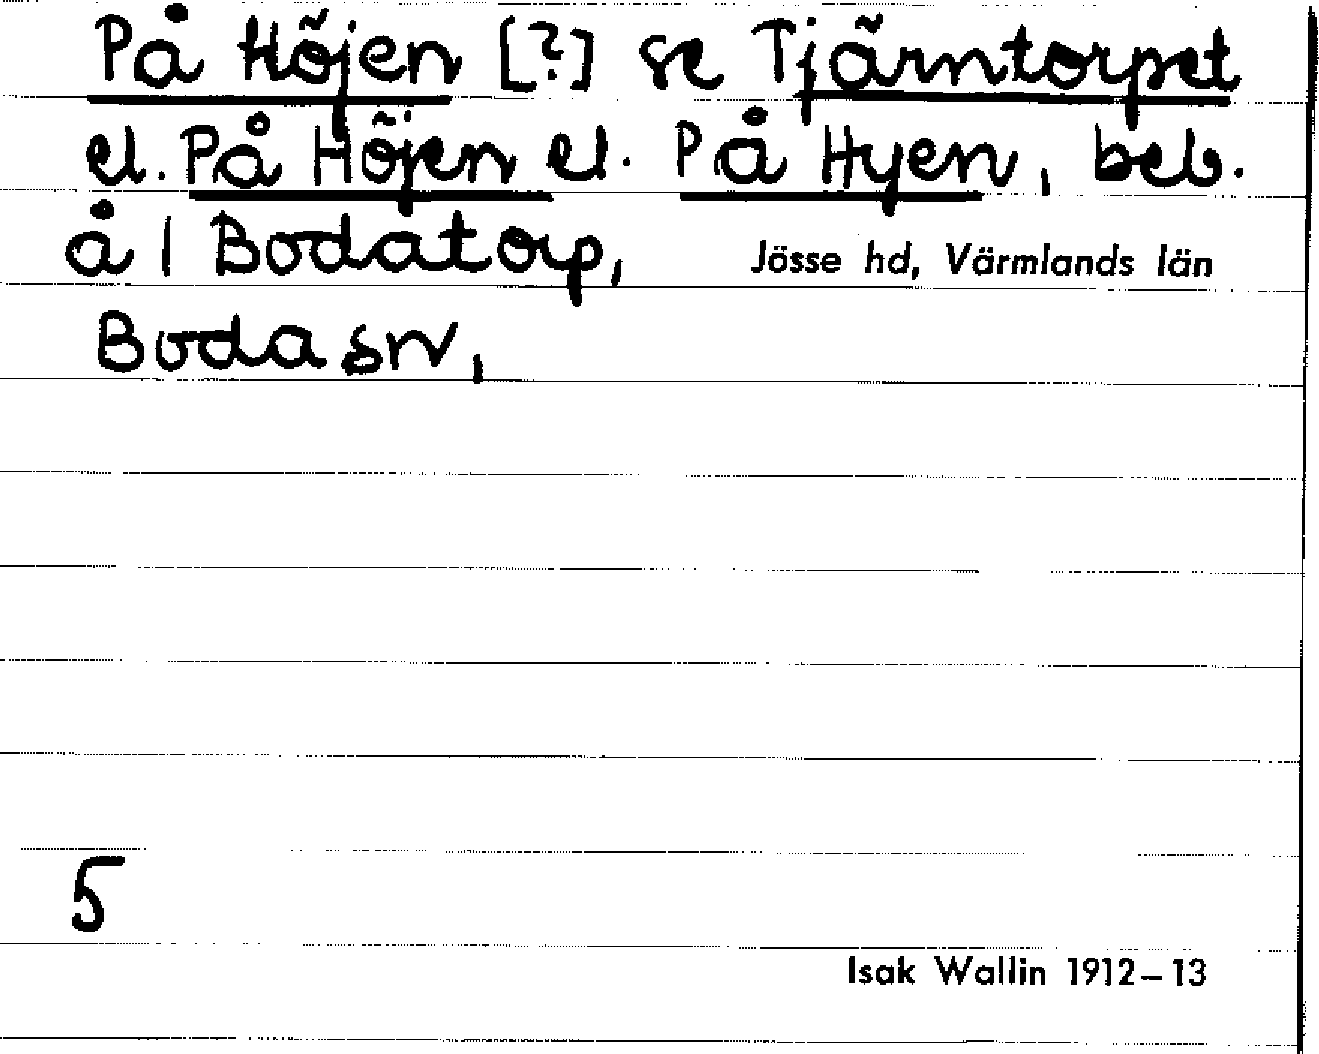 På Höjen [?] se Tjärntorpet
el. På Höjen el. På Hyen, beb.
å 1 Bodatorp, Jösse hd, Värmlands län
Boda sn,
5
Isak Wallin 1912–13